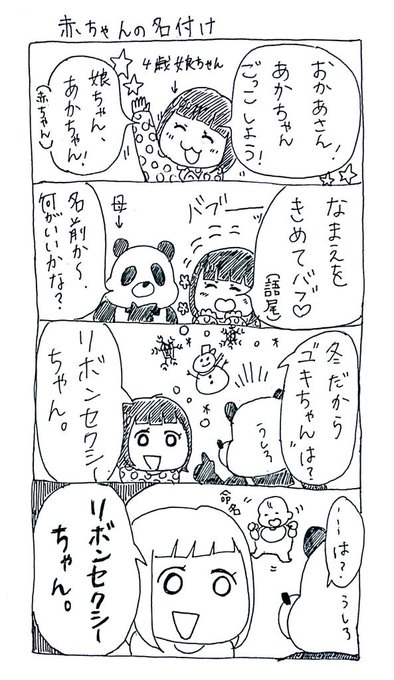 赤ちゃんの名付け
おかあさん!
あかちゃん
ごっこしよう!
4歳娘ちゃん
娘ちゃん、
あかちゃん!
(赤ちゃん)
なまえを
きめてバブ♡
(語尾)
バブーッ
母
名前か〜。
何がいいかな?
冬だから
ユキちゃんは?
うしろ
リボンセクシー
ちゃん。
…は?
うしろ
命名
リボンセクシー
ちゃん。